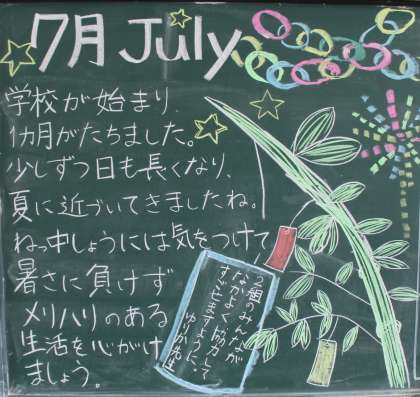 7月 July
学校が始まり、
1カ月がたちました。
少しずつ日も長くなり、
夏に近づいてきましたね。
ねっ中しょうには気をつけて
暑さに負けず
メリハリのある
生活を心がけ
ましょう。
2組のみんなが
なかよく協力して
すごせますように。
ゆりか先生